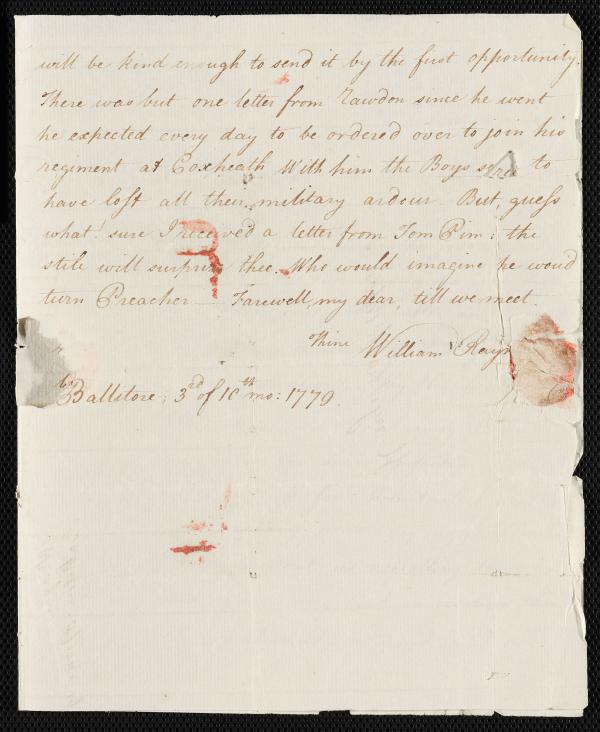 will be kind enough to send it by the first opportunity.
There was but one letter from Rawdon since he went
he expected every day to be ordered over to join his
regiment at Coxheath With him the Boys seem to
have lost all their military ardour. But, guess
what! sure I received a letter from Tom Pim: the
stile will surprize thee. Who would imagine he woud
turn Preacher — Farewell, my dear, till we meet.
Thine William
Ballitore, 3rd of 10th mo: 1779.